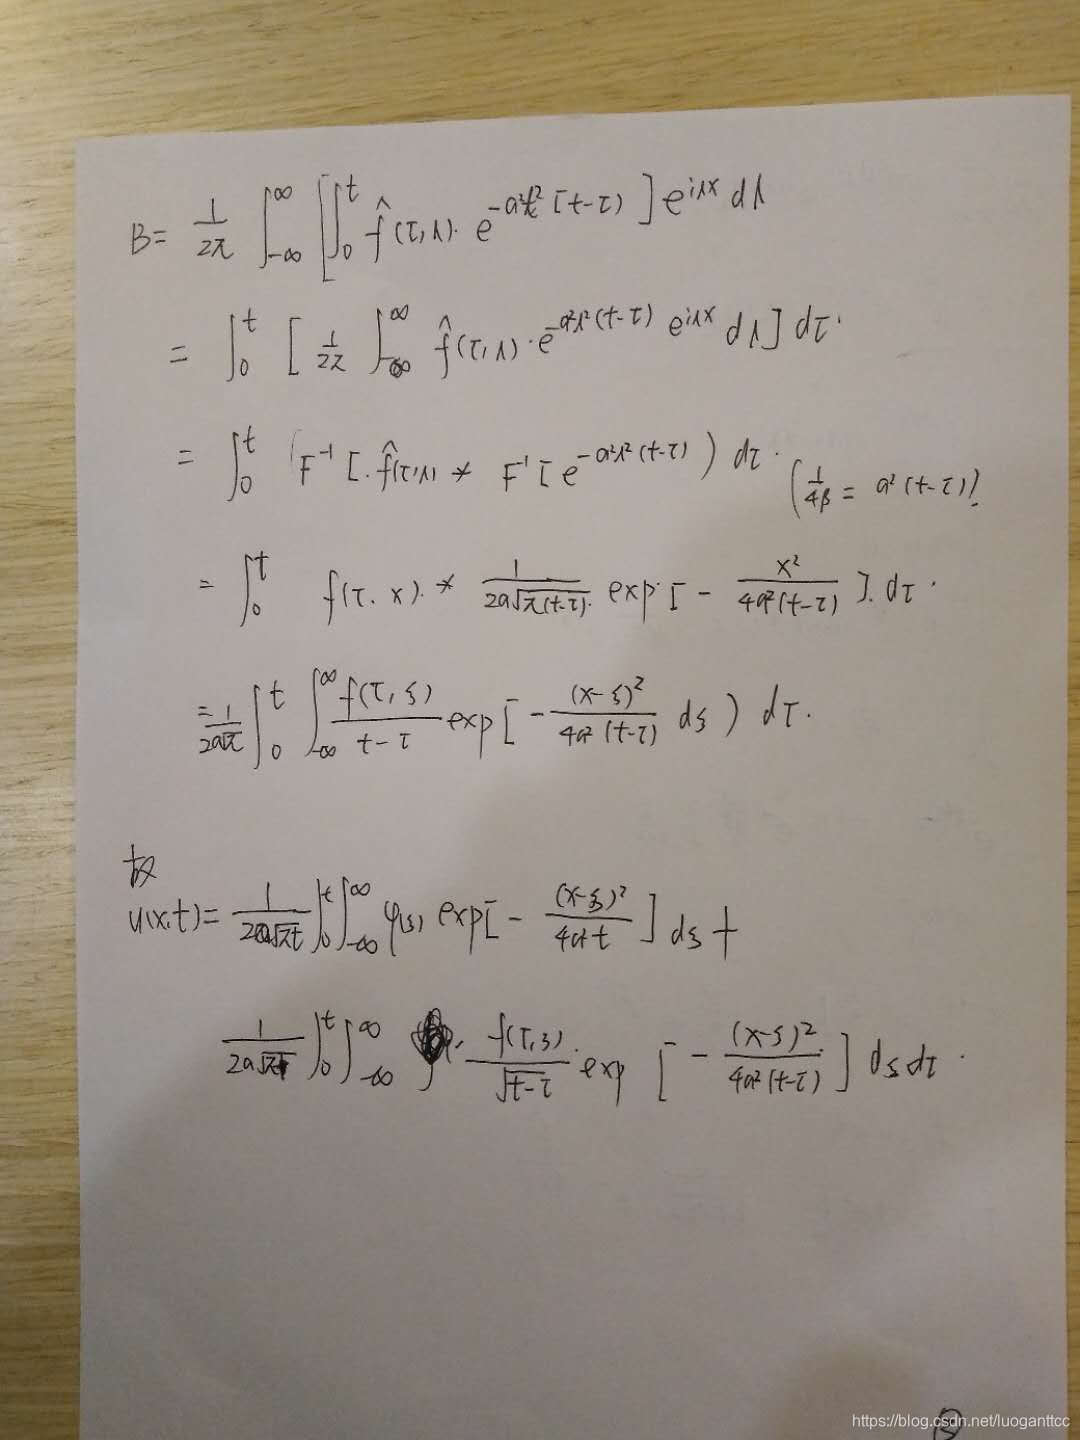 B = 1/2π ∫_{-∞}^{∞} [∫_0^t f̂(τ,λ)· e^{-a²λ²[t-τ)} ] e^{iλx} dλ
= ∫_0^t [ 1/2π ∫_{-∞}^{∞} f̂(τ,λ)·e^{-a²λ²(t-τ)} e^{iλx} dλ] dτ.
= ∫_0^t (F^{-1} [. f̂(τ,λ) * F^{-1} [ e^{-a²λ²(t-τ)} ) dτ. (1/4β = a²(t-τ))!
= ∫_0^t f(τ. x). * 1/2a√π(t-τ). exp. [ - x²/4a²(t-τ) ]. dτ.
= 1/2a√π ∫_0^t ∫_{-∞}^{∞} f(τ,ξ)/t-τ exp[ - (x-ξ)²/4a²(t-τ) dξ ) dτ.
故
u(x,t) = 1/2a√πt ∫_0^t ∫_{-∞}^{∞} φ(ξ) exp[ - (x-ξ)²/4a²t ] dξ +
1/2a√π ∫_0^t ∫_{-∞}^{∞} f(τ,ξ)/√t-τ exp [ - (x-ξ)²/4a²(t-τ) ] dξ dτ.
https://blog.csdn.net/luoganttcc